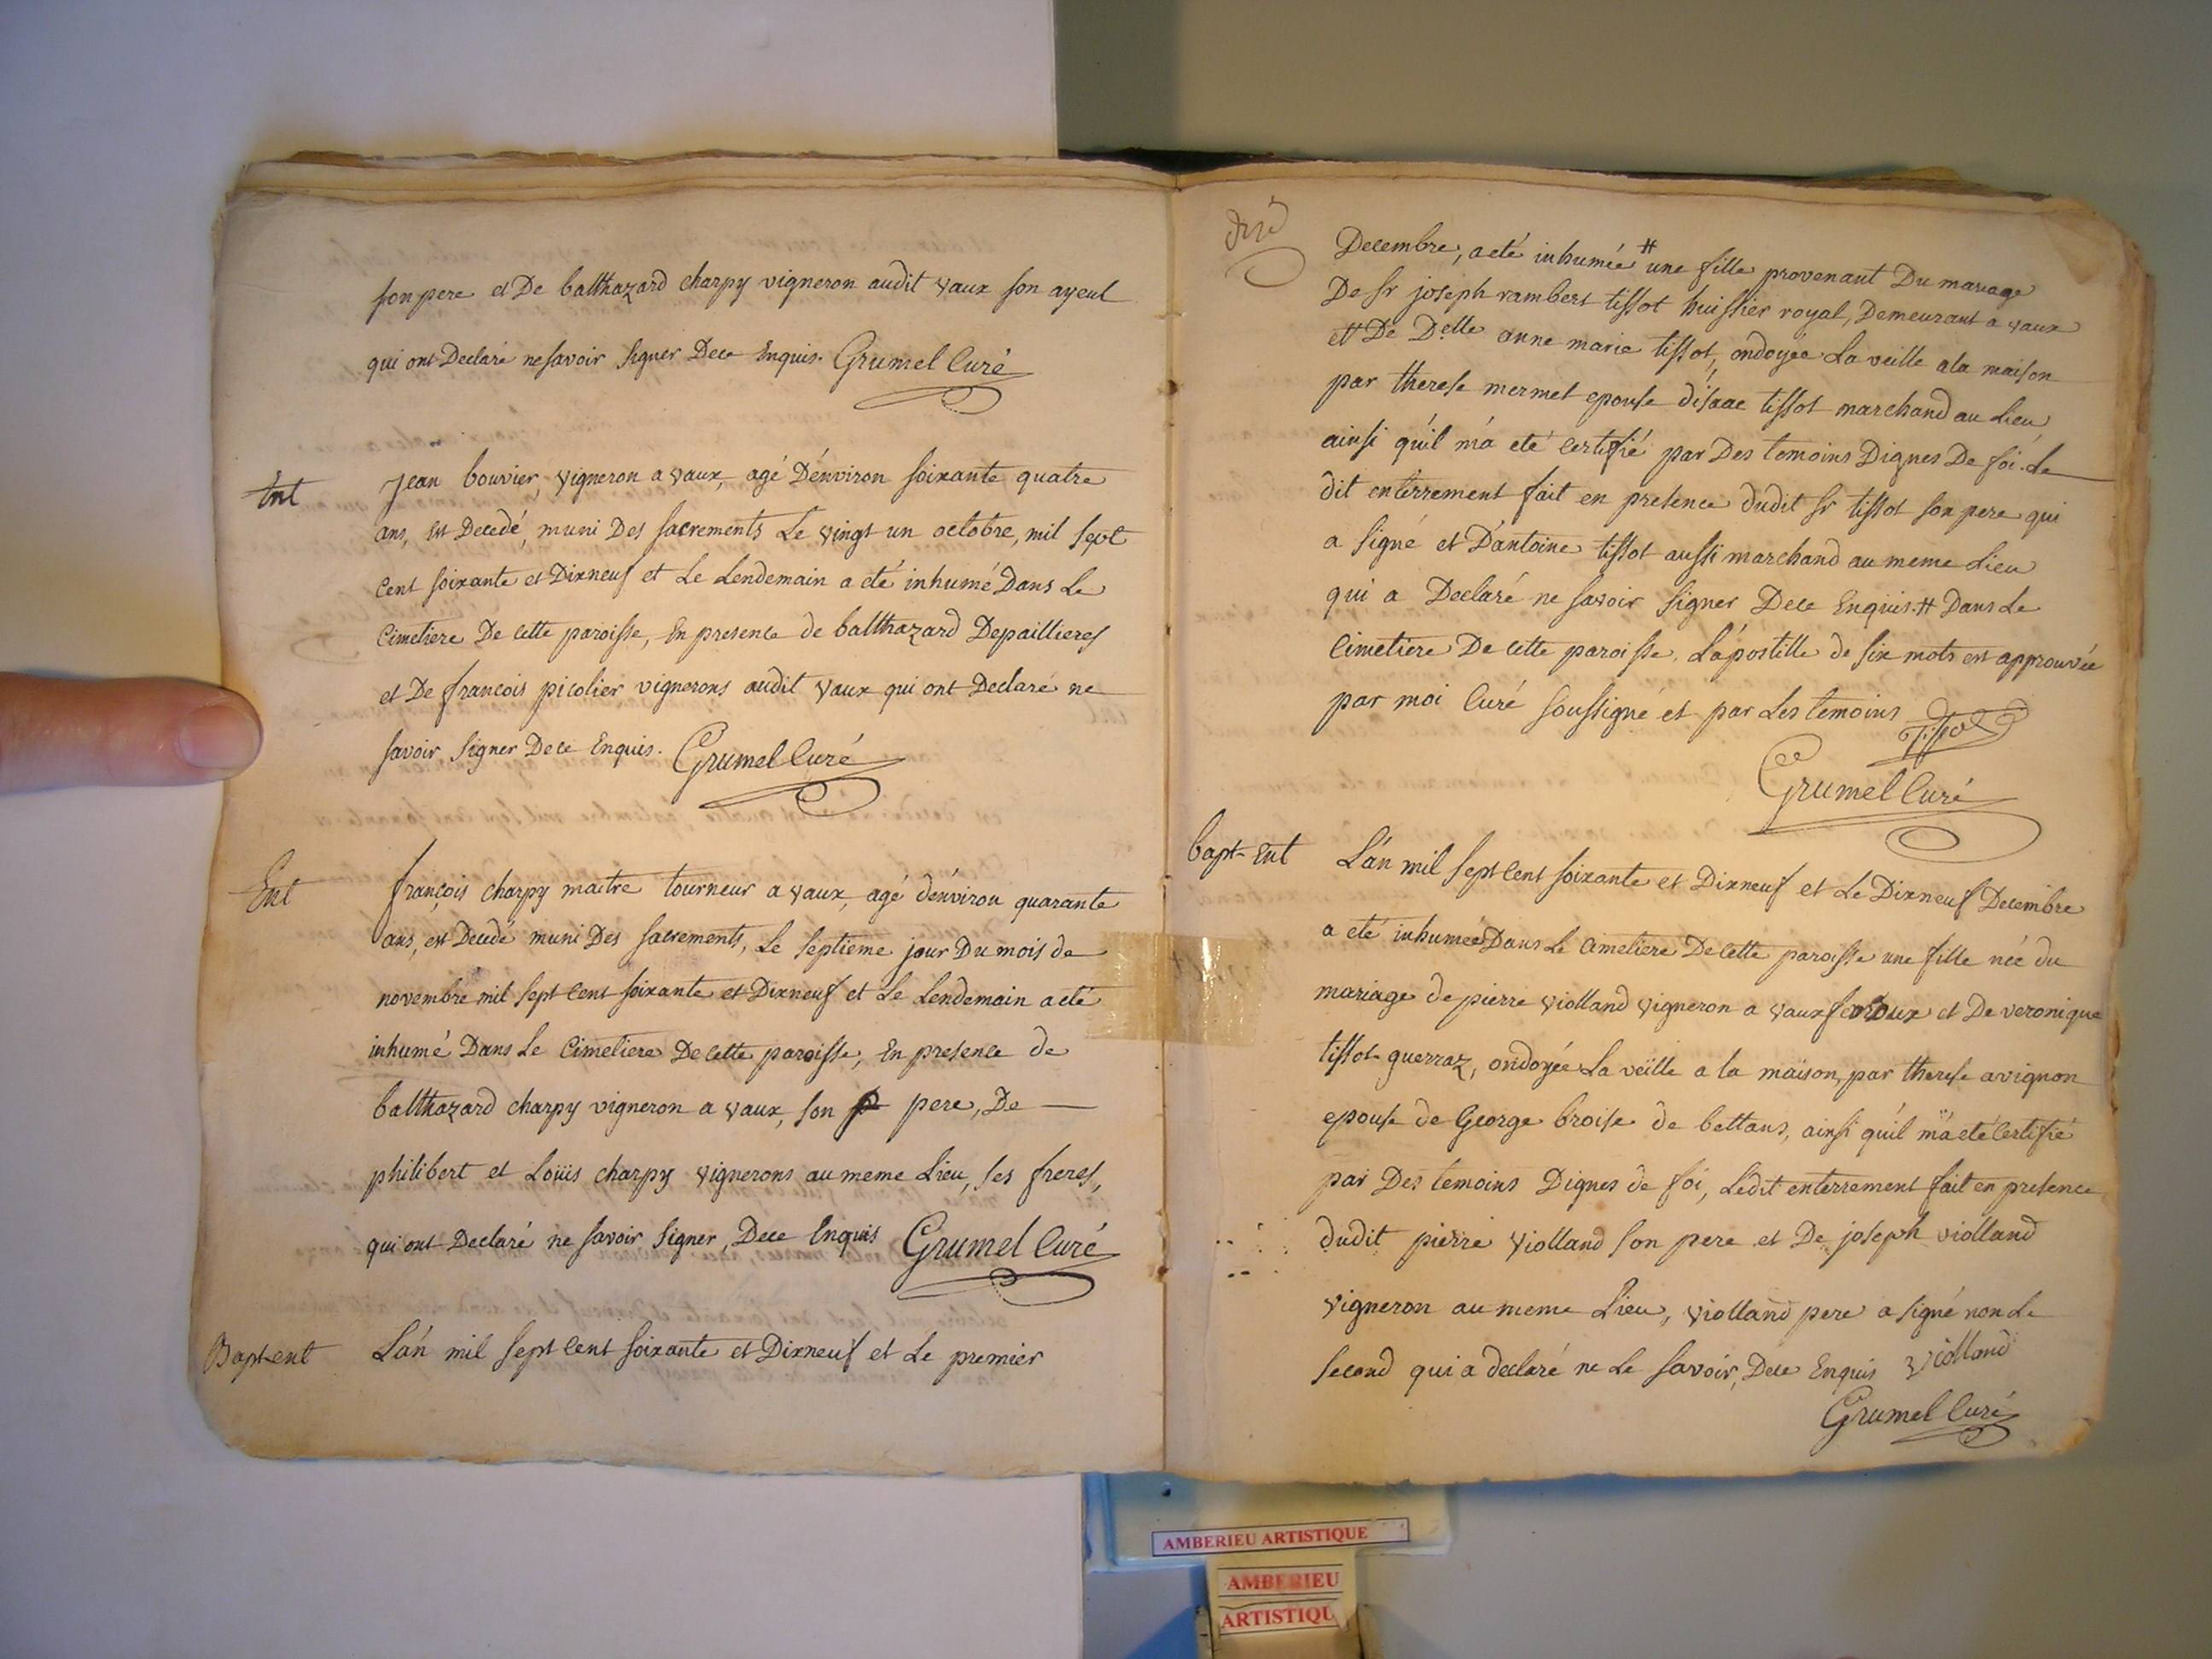 son pere et De balthazard charpy vigneron audit vaux son ayeul
qui ont Declaré ne savoir signer Dece Enquis. Grumel Curé
Ent
jean bouvier, vigneron a vaux, agé D'environ soixante quatre
ans, est Decedé, muni Des sacrements Le vingt un octobre, mil sept
cent soixante et Dixneuf et Le Lendemain a eté inhumé Dans Le
Cimetiere De cette paroisse, En presence de balthazard Depaillieres
et De francois picolier vignerons audit vaux qui ont Declaré ne
savoir signer Dece Enquis. Grumel Curé
Ent
françois charpy maitre tourneur a vaux, agé d'environ quarante
ans, est Decedé muni Des sacrements, Le septieme jour Du mois de
novembre mil sept cent soixante et Dixneuf et Le Lendemain a eté
inhumé Dans Le Cimetiere De cette paroisse, En presence de
balthazard charpy vigneron a vaux, son pere, De —
philibert et Loüis charpy vignerons au meme Lieu, ses freres,
qui ont Declaré ne savoir signer, Dece Enquis Grumel Curé
Bapt-ent
L'an mil sept cent soixante et Dixneuf et Le premier
Decembre, a eté inhumée # une fille provenant Du mariage
De Sr joseph rambert tissot huissier royal, Demeurant a vaux
et De Delle anne marie tissot, ondoyée La veille a la maison
par therese mermet epouse d'isaac tissot marchand au Lieu
ainsi qu'il m'a eté certifié par Des temoins Dignes De foi. Le
dit enterrement fait en presence dudit Sr tissot son pere qui
a signé et D'antoine tissot aussi marchand au meme Lieu
qui a Declaré ne savoir signer Dece Enquis. # Dans Le
Cimetiere De cette paroisse. L'apostille de six mots est approuvée
par moi Curé soussigné et par Les temoins Tissot
Grumel Curé
bapt-Ent
L'an mil sept cent soixante et Dixneuf et Le Dixneuf Decembre
a eté inhumée Dans Le cimetiere De cette paroisse une fille née du
mariage de pierre violland vigneron a vaux fevroux et De veronique
tissot-guerraz, ondoyée La veille a la maison, par therese avignon
epouse de George broise de bettans, ainsi qu'il m'a eté certifié
par Des temoins Dignes de foi, Ledit enterrement fait en presence
dudit pierre violland son pere et De joseph violland
vigneron au meme Lieu, violland pere a signé non Le
second qui a declaré ne Le savoir, Dece Enquis violland
Grumel Curé
AMBERIEU ARTISTIQUE
AMBERIEU
ARTISTIQU